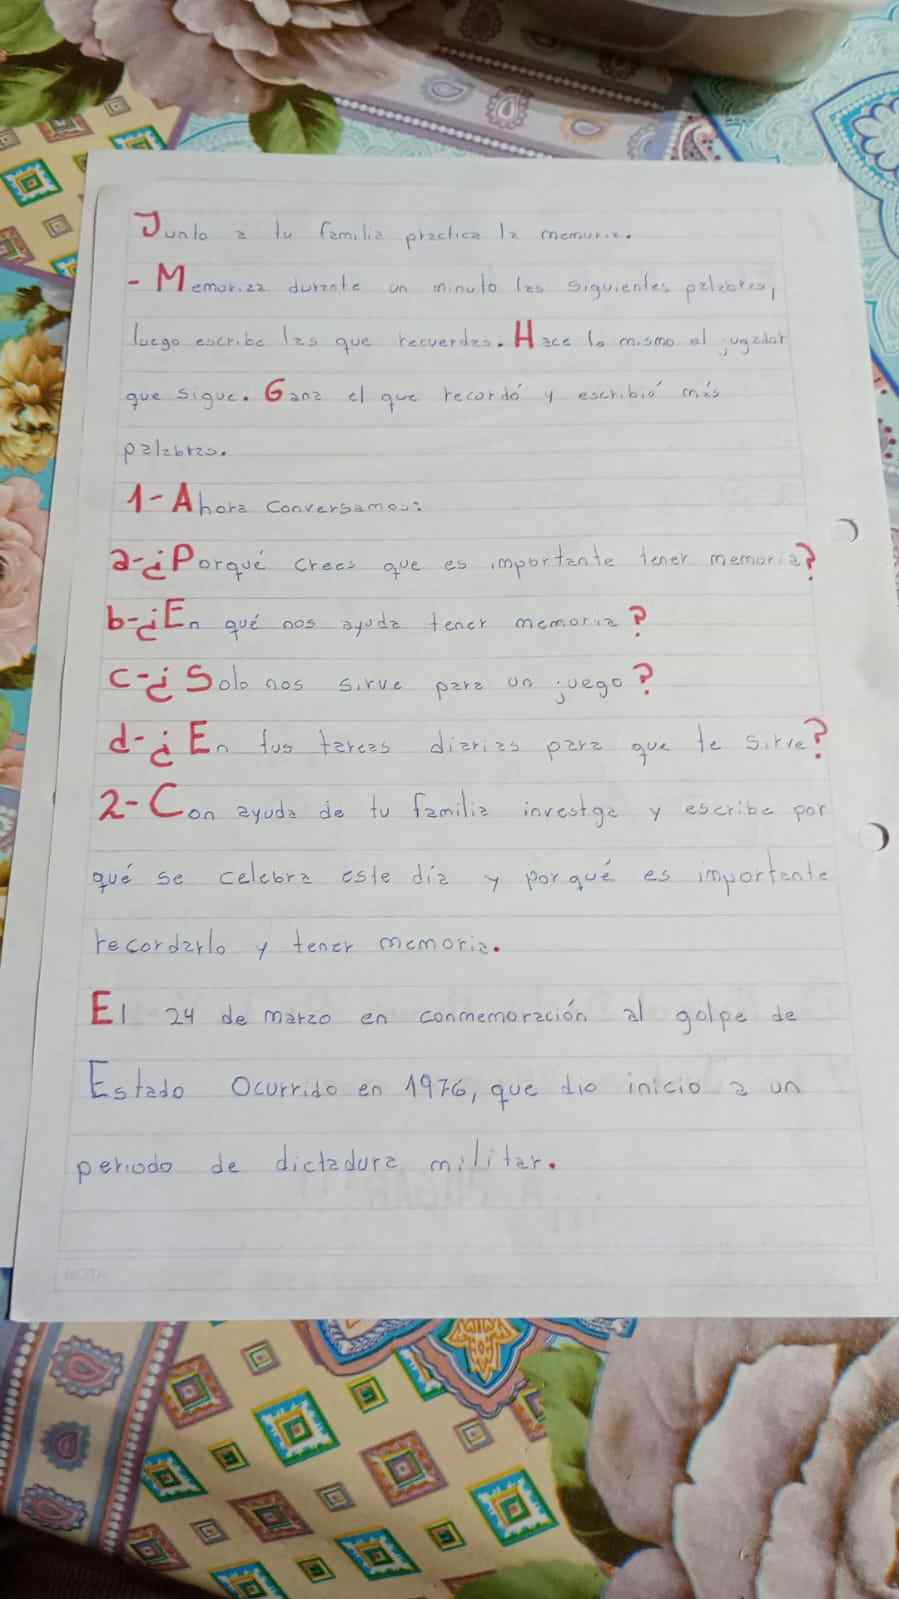 Junto a tu familia practica la memoria.
- Memoriza durante un minuto las siguientes palabras,
luego escribe las que recuerdes. Hace lo mismo el jugador
que sigue. Gana el que recordó y escribió más
palabras.
1- Ahora conversamos:
a-¿Porqué crees que es importante tener memoria?
b-¿En qué nos ayuda tener memoria?
c-¿Solo nos sirve para un juego?
d-¿En tus tareas diarias para que te sirve?
2- Con ayuda de tu familia investga y escribe por
qué se celebra este día y porqué es importante
recordarlo y tener memoria.
El 24 de marzo en conmemoración al golpe de
Estado Ocurrido en 1976, que dio inicio a un
periodo de dictadura militar.